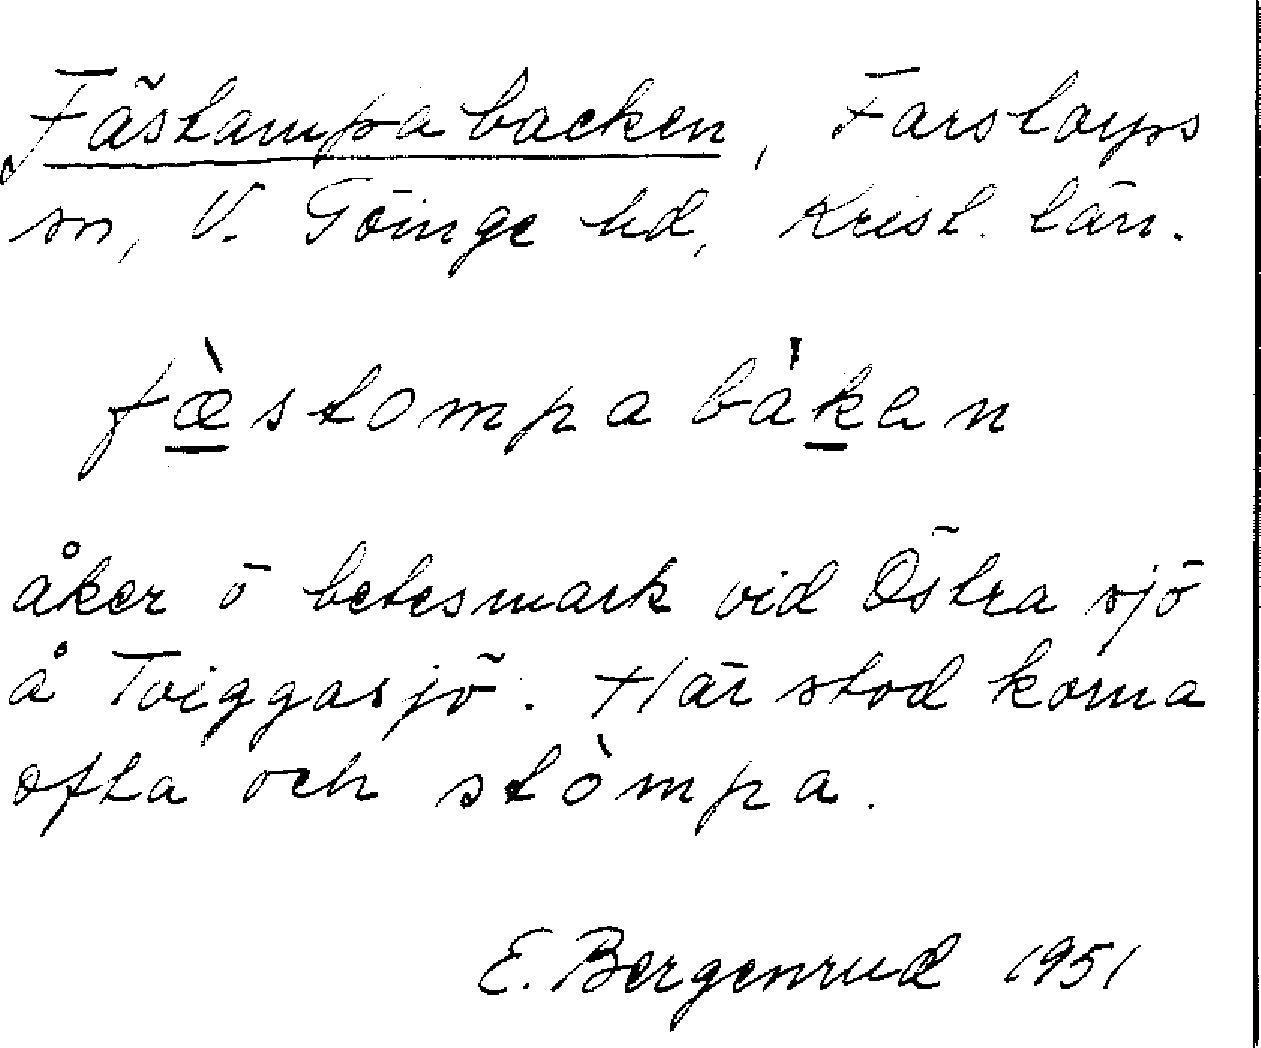 Fästampabacken, Farstorps
sn, V. Göinge hd, Krist. län.
fæ̀stompabákan
åker o betesmark vid Östra sjö
å Tviggasjö. Här stod korna
ofta och stòmpa.
E. Bergenrud 1951